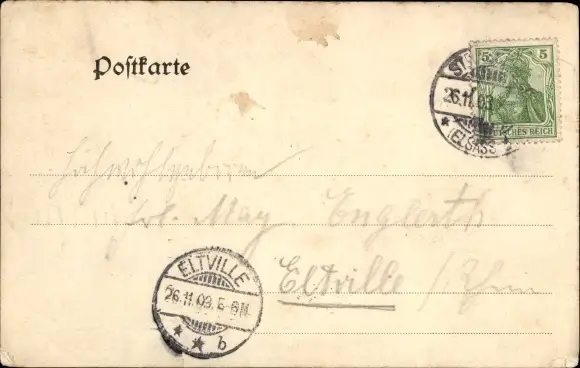 Postkarte
5 5
26.11.03
(ELSASS
REICH
Hochwohlgeboren
Frl. May Englerth
Eltville /Rhein
ELTVILLE
26.11.03. 5-6N.
* * b